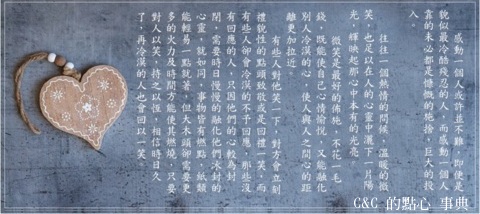 感動一個人或許並不難，即使是
貌似最冷酷殘忍的人，而感動一個人
靠的未必都是慷慨的施捨，巨大的投
入。
往往一個熱情的問候，溫暖的微
笑，也足以在人的心靈中灑下一片陽
光，輝映起那心中本有的光亮。
微笑是最好的佈施，不花一毛
錢，既能使自己心情愉悅，又能融化
別人冷漠的心，使人與人之間心的距
離更加拉近。
有些人對他笑一下，對方會立刻
禮貌性的點頭致敬或是回禮一笑，而
有些人卻會冷漠的不予回應，那些沒
有回應的人，只因他們的心較為封
閉，需要時日慢慢的融化他們冰封的
心靈，就如同，事物皆有燃點，紙類
能輕易一點就著，但大木頭卻需要更
多的火力及時間方能使其燃燒，只要
對人以笑，持之以恆，相信時日久
了，再冷漠的人也會回以一笑。
C&C 的點心 事典